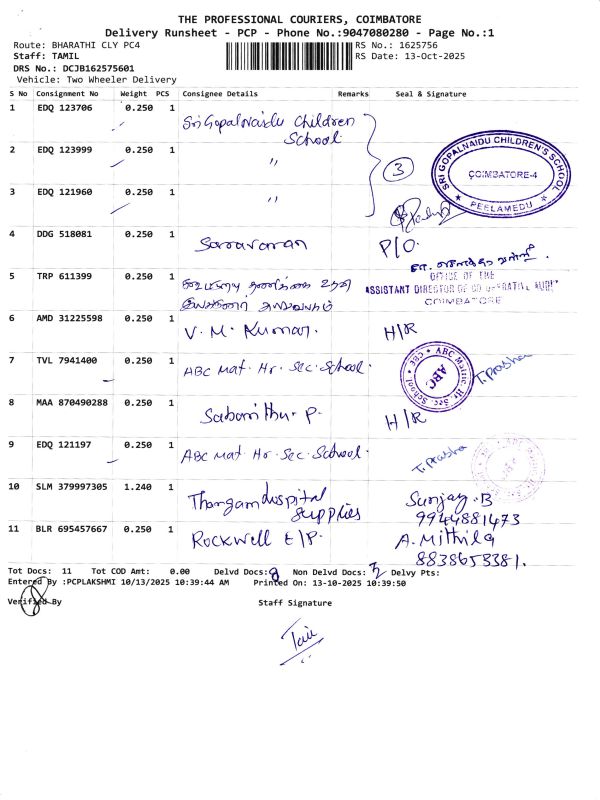 THE PROFESSIONAL COURIERS, COIMBATORE
Delivery Runsheet - PCP - Phone No.:9047080280 - Page No.:1
Route: BHARATHI CLY PC4
RS No.: 1625756
Staff: TAMIL
RS Date: 13-Oct-2025
DRS No.: DCJB162575601
Vehicle: Two Wheeler Delivery
S No Consignment No Weight PCS Consignee Details Remarks Seal & Signature
1 EDQ 123706 0.250 1 Sri Gopal Naidu Children School
2 EDQ 123999 0.250 1 〃
3 EDQ 121960 0.250 1 〃
3
SRI GOPALNAIDU CHILDREN'S SCHOOL
COIMBATORE-4
★ PEELAMEDU ★
4 DDG 518081 0.250 1 Saravanan P/O.
5 TRP 611399 0.250 1 கூட்டுறவு தணிக்கை உதவி
இயக்குனர் அலுவலகம்
OFFICE OF THE
ASSISTANT DIRECTOR OF CO OPERATIVE AUDIT
COIMBATORE
6 AMD 31225598 0.250 1 V. M. Kumar. H/R
7 TVL 7941400 0.250 1 ABC Mat. Hr. Sec. School.
ABC Matric. Hr. Sec. School
ABC
T. Prabha
8 MAA 870490288 0.250 1 Sabarithu. P. H/R
9 EDQ 121197 0.250 1 ABC Mat. Hr. Sec. School.
T. Prabha
10 SLM 379997305 1.240 1 Thangam Hospital Supplies Sunjay.B
9944881473
11 BLR 695457667 0.250 1 Rockwell E/P. A. Mithila
8838653381.
Tot Docs: 11 Tot COD Amt: 0.00 Delvd Docs: 8 Non Delvd Docs: 3 Delvy Pts:
Entered By :PCPLAKSHMI 10/13/2025 10:39:44 AM Printed On: 13-10-2025 10:39:50
Verified By Staff Signature